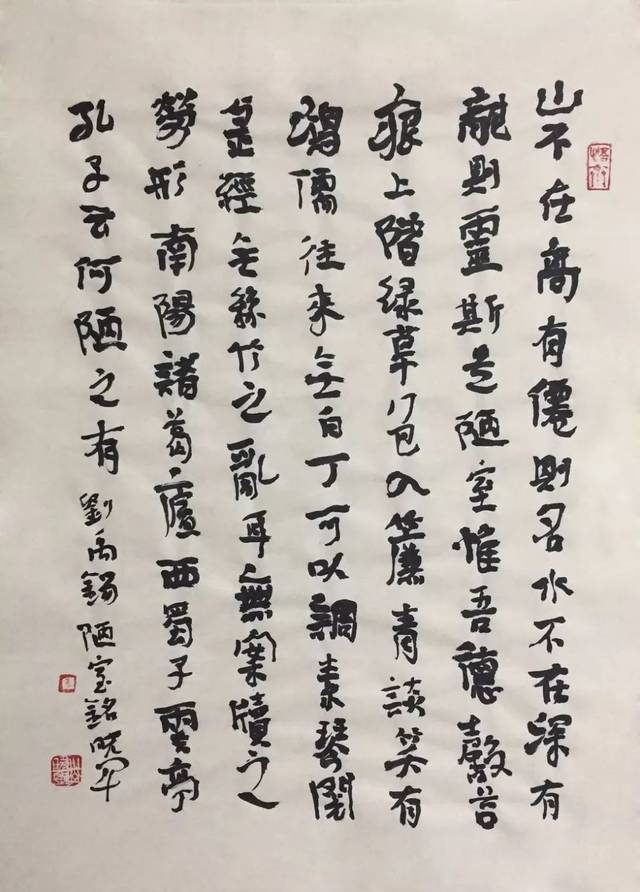 山不在高有僊則名水不在深有
龍則靈斯是陋室惟吾德馨苔
痕上階綠草色入簾青談笑有
鴻儒往來無白丁可以調素琴閱
金經無絲竹之亂耳無案牘之
勞形南陽諸葛廬西蜀子雲亭
孔子云何陋之有
劉禹錫陋室銘